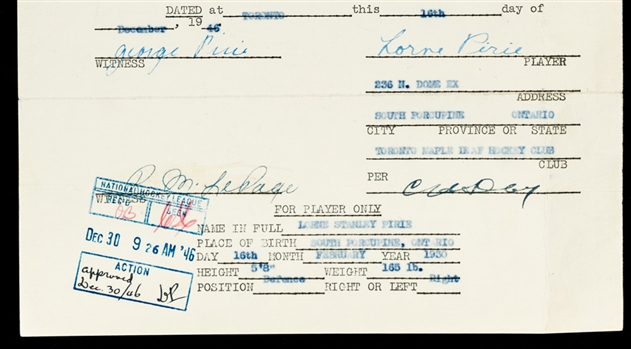 DATED at TORONTO this 16th day of
December, 19 46
George Pirie Lorne Pirie
WITNESS PLAYER
236 N. DOME EX
ADDRESS
SOUTH PORCUPINE ONTARIO
CITY PROVINCE OR STATE
TORONTO MAPLE LEAF HOCKEY CLUB
CLUB
R. M. LePage PER
NATIONAL HOCKEY LEAGUE
FOR PLAYER ONLY
NAME IN FULL LORNE STANLEY PIRIE
PLACE OF BIRTH SOUTH PORCUPINE, ONTARIO
DEC 30 9 26 AM '46
DAY 16th MONTH FEBRUARY YEAR 1930
HEIGHT 5'8" WEIGHT 165 lb.
POSITION Defence RIGHT OR LEFT Right
ACTION
approved
Dec. 30/46